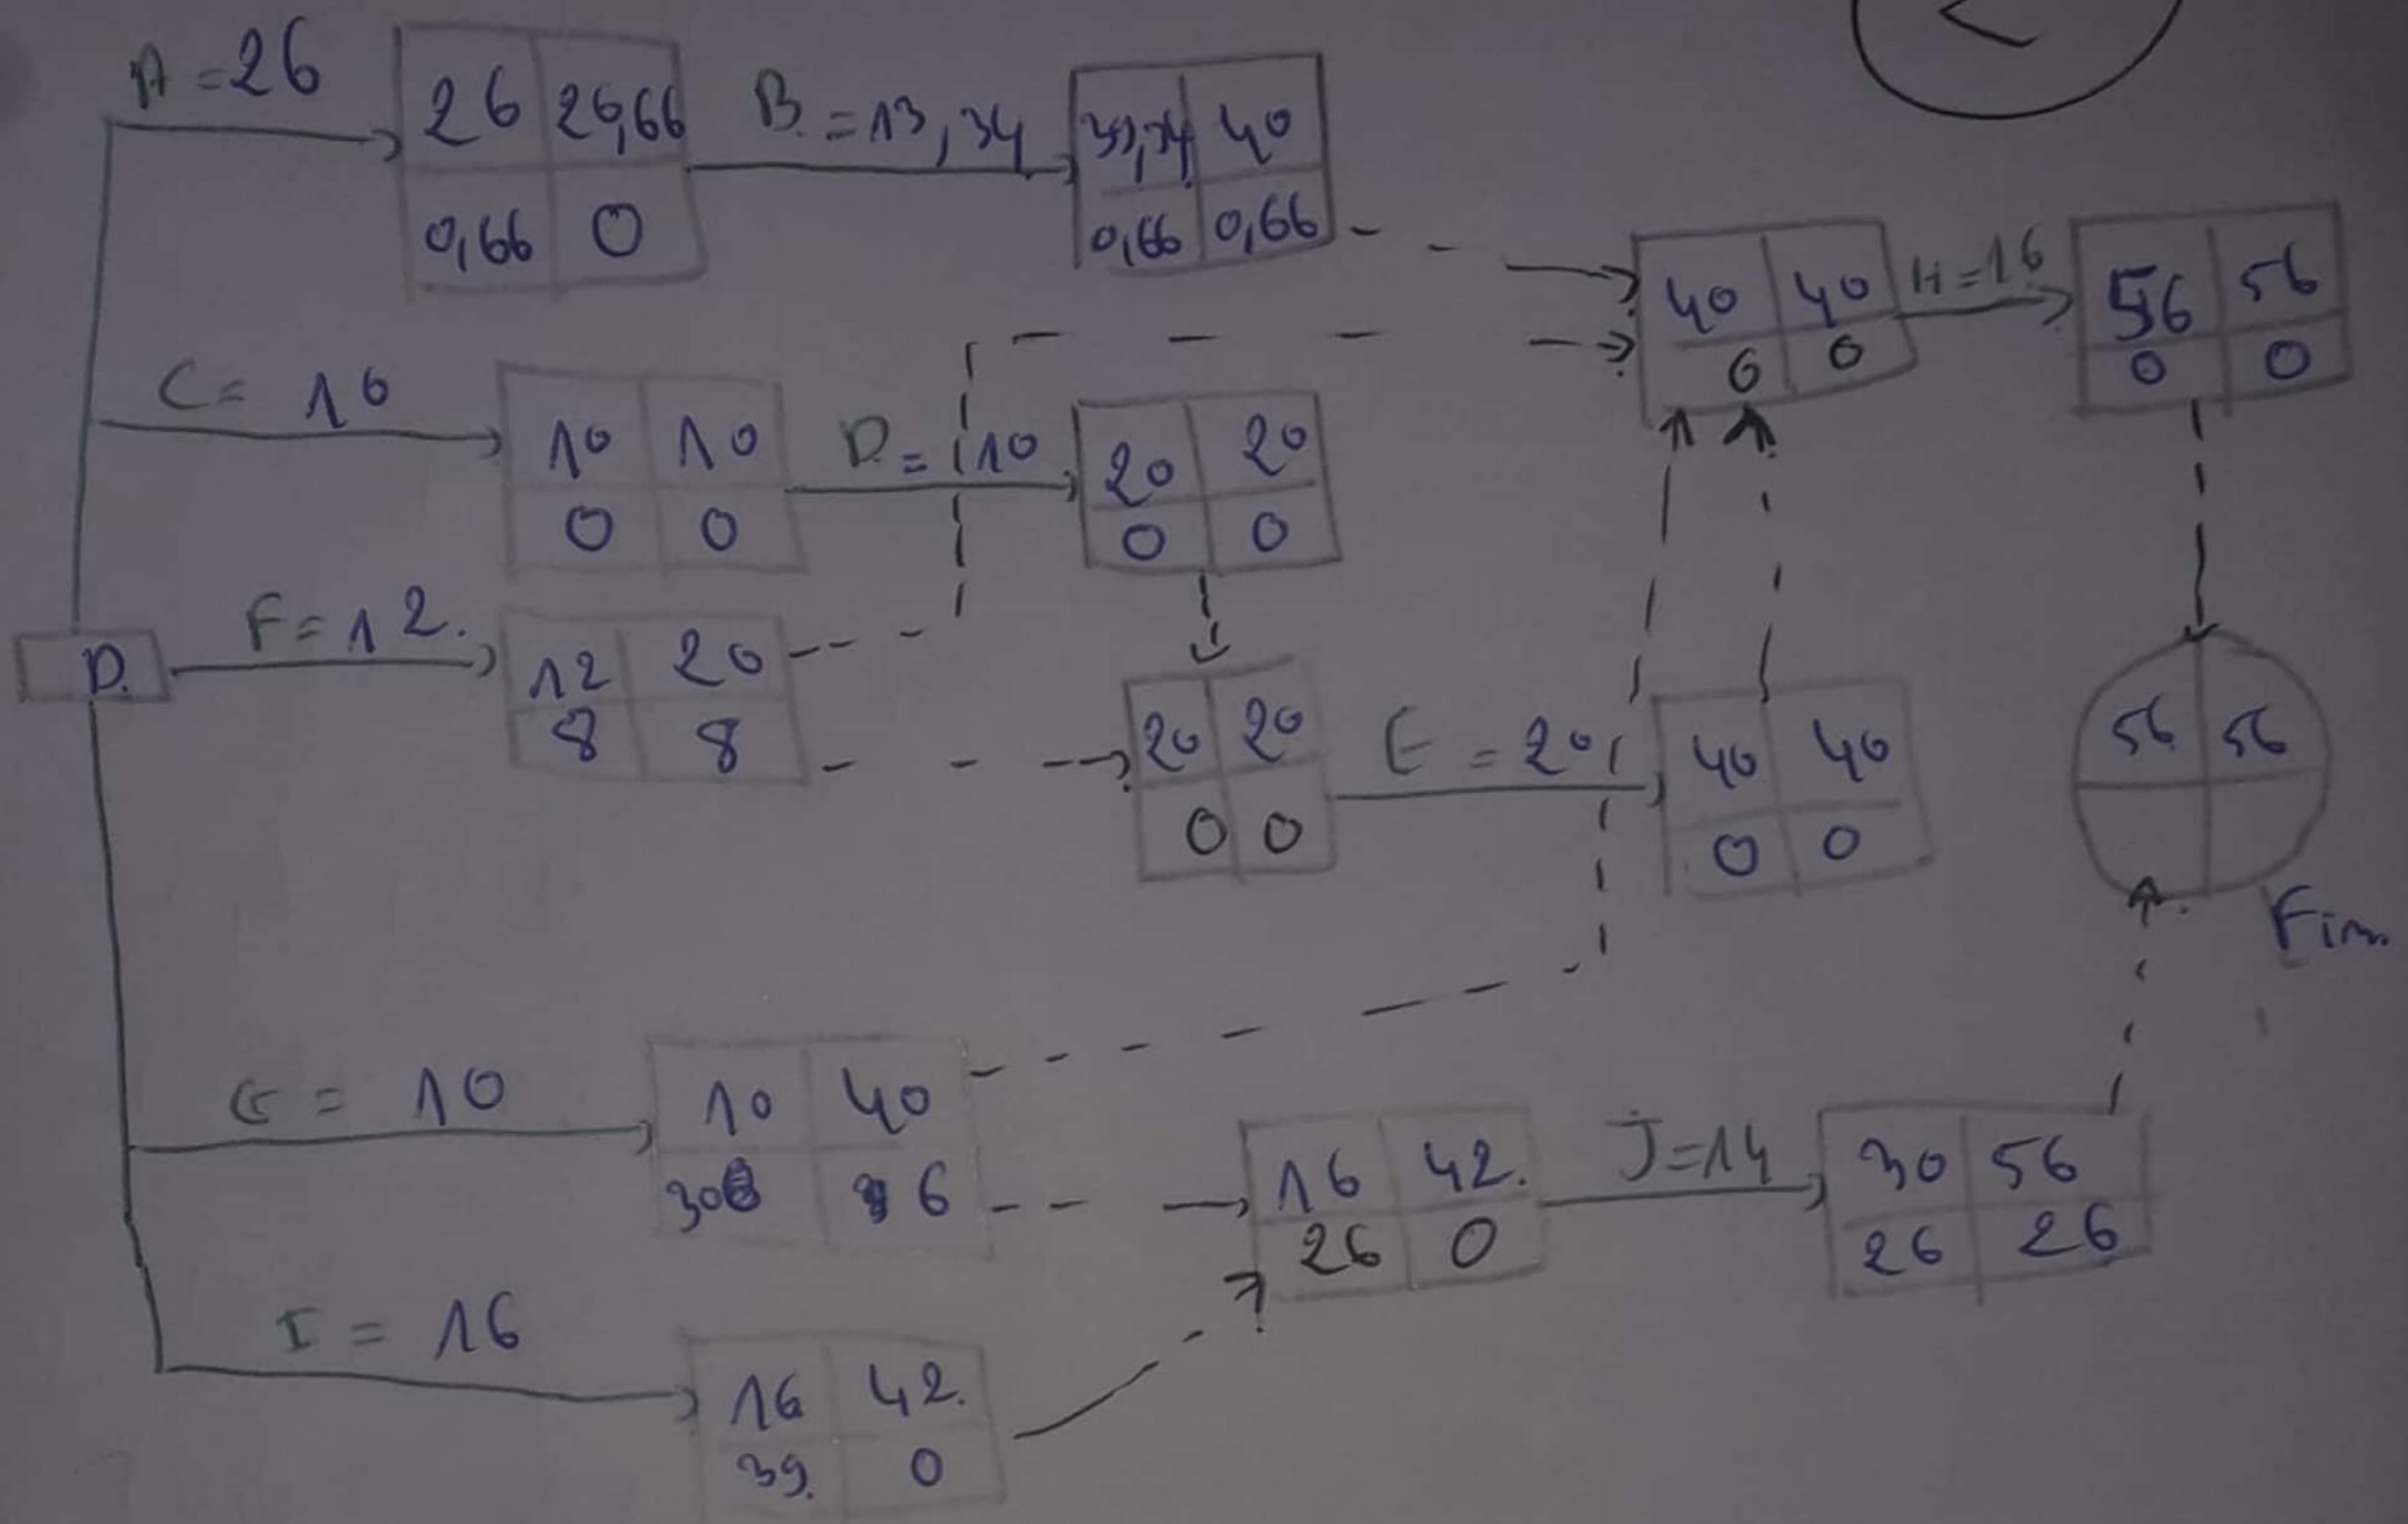 A = 26
26 26,66
0,66 0
B = 13,34
39,34 40
0,66 0,66
40 40
0 0
H = 16
56 56
0 0
C = 10
10 10
0 0
D = 10
20 20
0 0
D.
F = 12.
12 20
8 8
20 20
0 0
E = 20
40 40
0 0
56 56
Fin
G = 10
10 40
30 6
16 42.
26 0
J = 14
30 56
26 26
I = 16
16 42.
39. 0